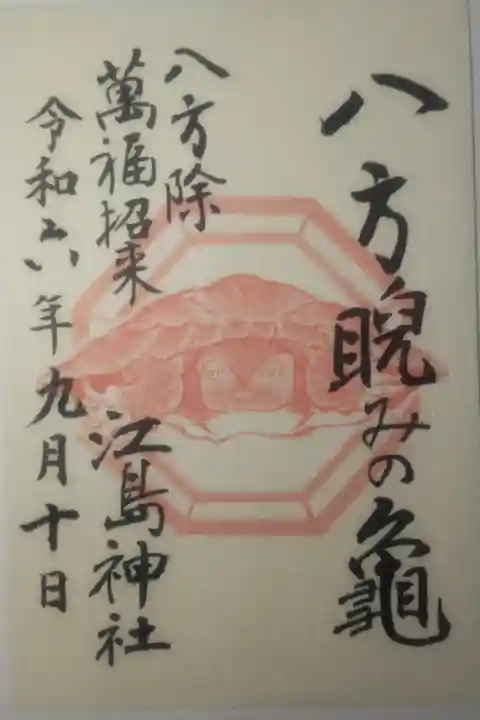 八方睨みの龜
八方除
萬福招来
江島神社
令和六年九月十日